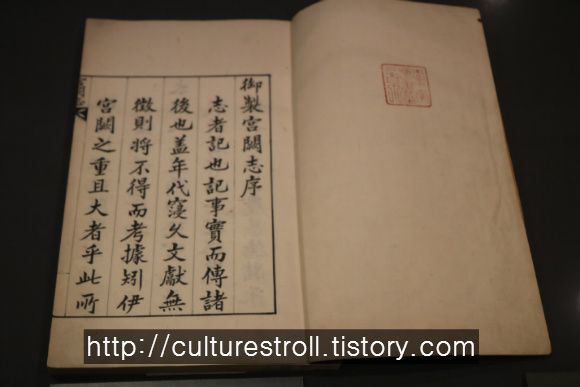 御製宮闕志序
志者記也記事實而傳諸
後也盖年代寖久文獻無
徵則將不得而考據矧伊
宮闕之重且大者乎此所
http://culturestroll.tistory.com